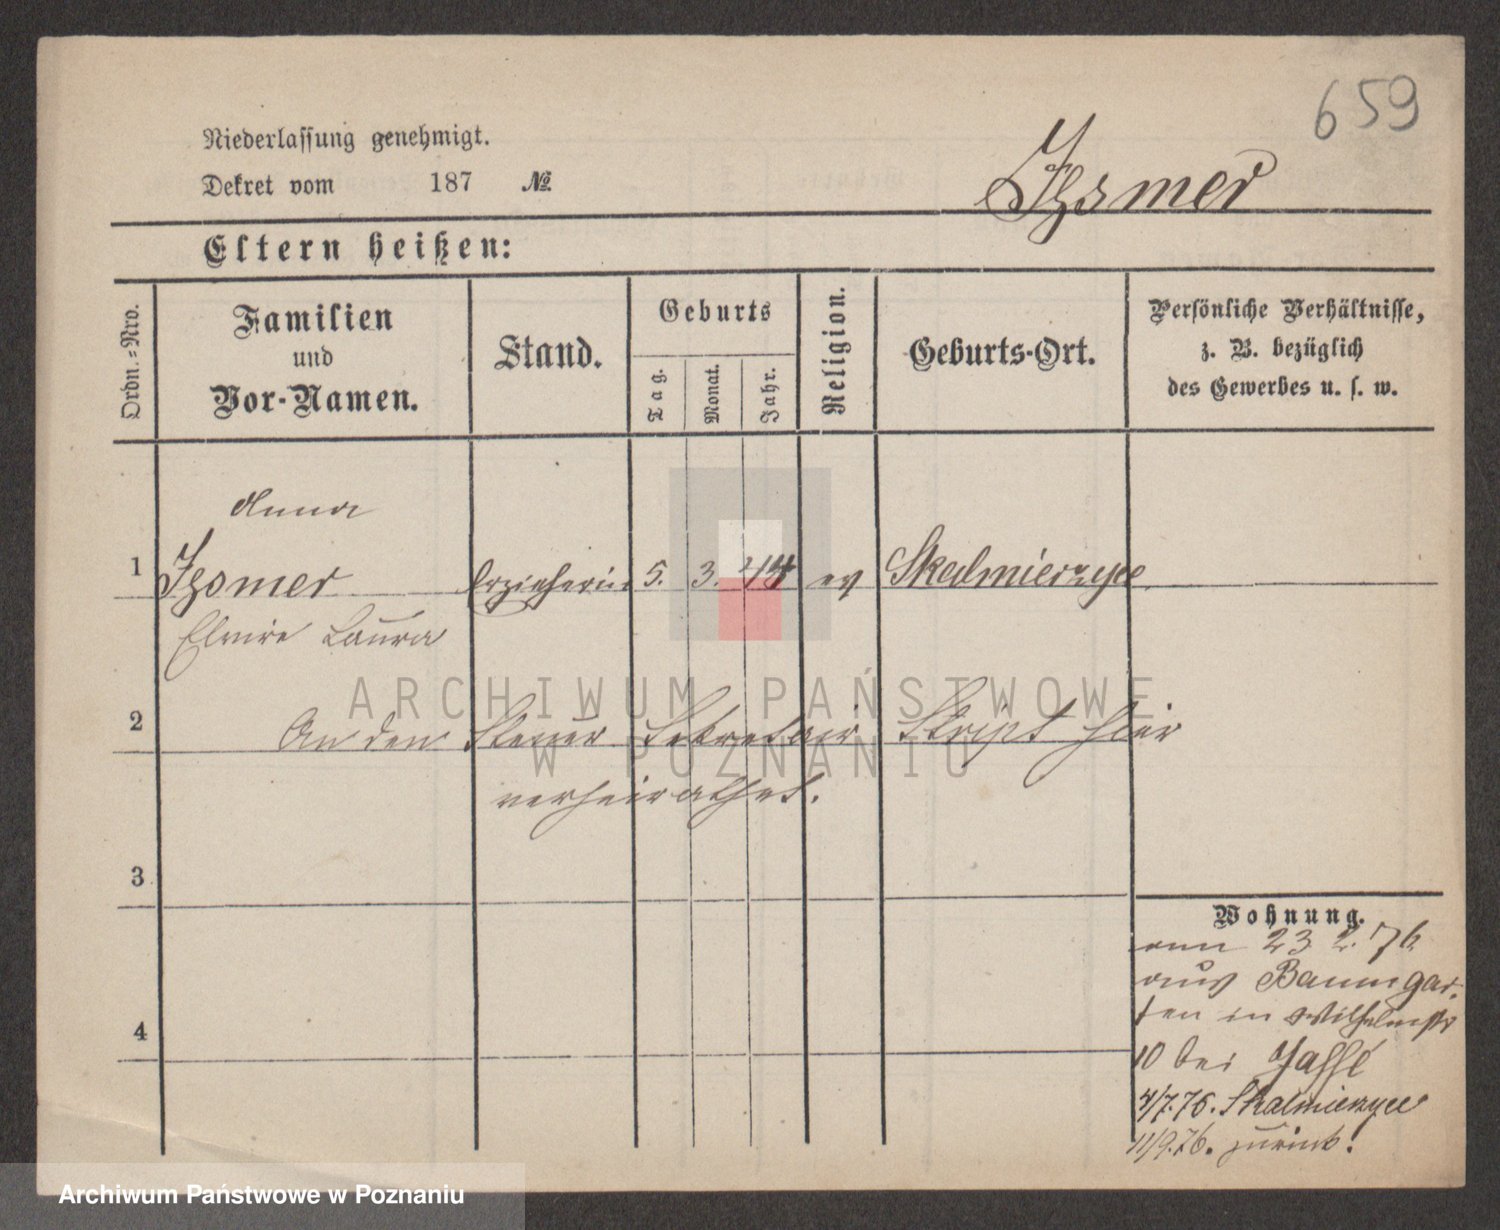 659
Niederlassung genehmigt.
Dekret vom 187 №
Izsmer
Eltern heißen:
Ordn.=Nro.
Familien
und
Vor-Namen.
Stand.
Geburts
Tag.
Monat.
Jahr.
Religion.
Geburts-Ort.
Persönliche Verhältnisse,
z. B. bezüglich
des Gewerbes u. s. w.
Anna
1 Izsmer Erzieherin 5. 3. 44 ev Skalmierzyce
Elvire Laura
ARCHIWUM PAŃSTWOWE
W POZNANIU
2 An den Steuer Sekretair Skript hier
verheirathet.
3
4
Wohnung.
am 23 2. 76
aus Baumgar-
ten in Wilhelmstr
10 bei Jaffé
4/7.76. Skalmierzyce
11/9.76. zurück.
Archiwum Państwowe w Poznaniu